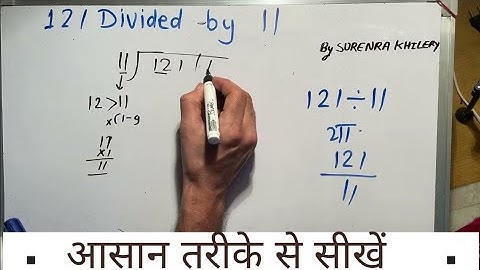 121 Divided by 11
By SURENRA KHILERY
11 121 11
12 > 11
×(1-9
11
×1
11
121÷11
या
121
11
▪ आसान तरीके से सीखें ▪